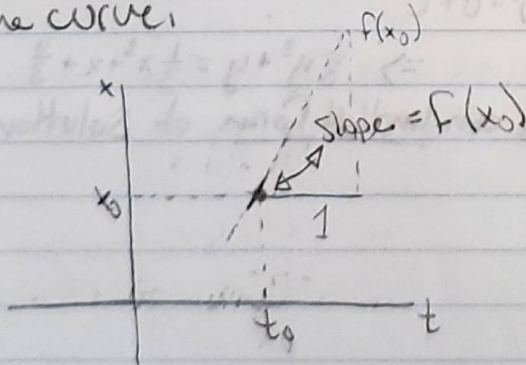 he curve.
f(x₀)
x
slope = f(x₀)
x₀
1
t₀
t